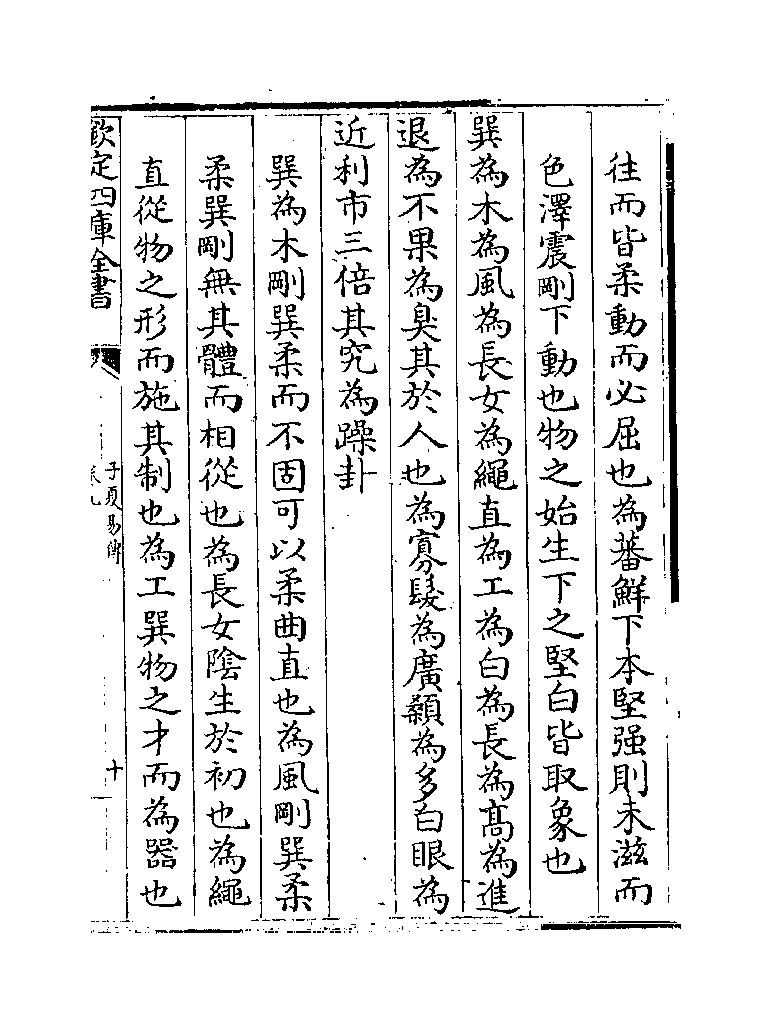 往而皆柔動而必屈也為蕃鮮下本堅强則未滋而
色澤震剛下動也物之始生下之堅白皆取象也
巽為木為風為長女為繩直為工為白為長為髙為進
退為不果為臭其於人也為寡髮為廣顙為多白眼為
近利市三倍其究為躁卦
巽為木剛巽柔而不固可以柔曲直也為風剛巽柔
柔巽剛無其體而相從也為長女陰生於初也為繩
直從物之形而施其制也為工巽物之才而為器也
欽定四庫全書
子夏易傳
卷九
十